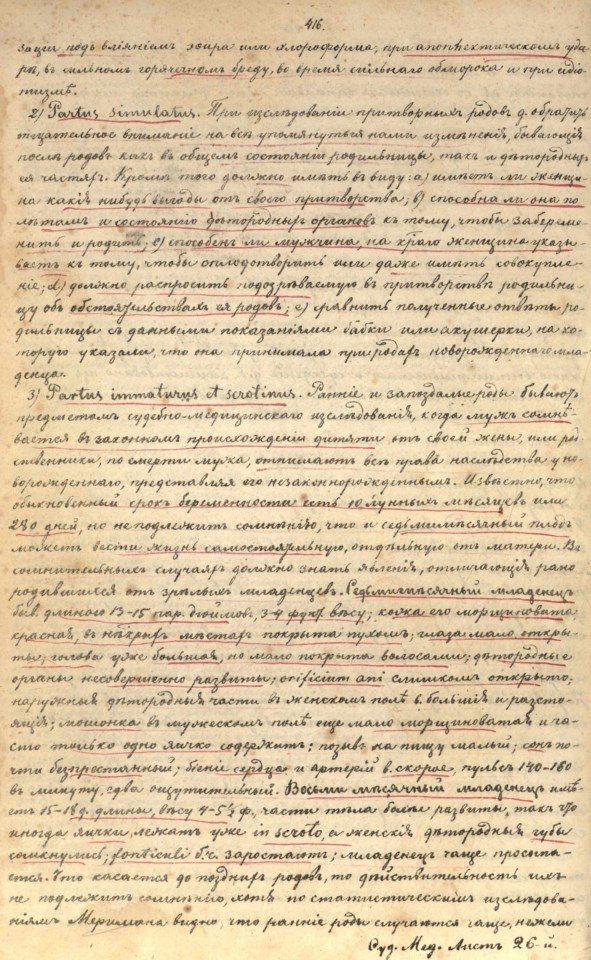 416.
заціи подъ вліяніемъ эѳира или хлороформа, при апоплектическомъ уда-
рѣ, въ сильномъ горячечномъ бреду, во время сильнаго обморока и при идіо-
тизмѣ.
2) Partus simulatus. При изслѣдованіи притворныхъ родовъ д. обратить
тщательное вниманіе на всѣ упомянутыя нами измѣненія, бывающія
послѣ родовъ какъ въ общемъ состояніи родильницы, такъ и дѣтородныхъ
ея частяхъ. Кромѣ того должно имѣть въ виду: a) имѣетъ ли женщи-
на какія нибудь выгоды отъ своего притворства; b) способна ли она по
лѣтамъ и состоянію дѣтородныхъ органовъ къ тому, чтобы забереме-
нить и родить; c) способенъ ли мужчина, на котораго женщина указы-
ваетъ къ тому, чтобы оплодотворить или даже имѣть совокупле-
ніе; d) должно распросить подозрѣваемую въ притворствѣ родильни-
цу объ обстоятельствахъ ея родовъ; e) сравнить полученные отвѣты ро-
дильницы съ данными показаніями бабки или акушерки, на ко-
торую указали, что она принимала при родахъ новорожденнаго мла-
денца.
3) Partus immaturus et serotinus. Ранніе и запоздалые роды бываютъ
предметомъ судебно-медицинскаго изслѣдованія, когда мужъ сомнѣ-
вается въ законномъ происхожденіи дитяти отъ своей жены, или род-
ственники, по смерти мужа, отнимаютъ всѣ права наслѣдства у но-
ворожденнаго, представляя его незаконнорожденнымъ. Извѣстно, что
обыкновенный срокъ беременности есть 10 лунныхъ мѣсяцевъ или
280 дней, но не подлежитъ сомнѣнію, что и седьмимѣсячный плодъ
можетъ вести жизнь самостоятельную, отдѣльную отъ матери. Въ
сомнительныхъ случаяхъ должно знать явленія, отличающія рано
родившихся отъ зрѣлыхъ младенцевъ. Седьмимѣсячный младенецъ
быв. длиною 13-15 пар. дюймовъ, 3-4 фун. вѣсу; кожа его морщиновата
красная, въ нѣкыхъ мѣстахъ покрыта пухомъ; глаза мало откры-
ты; голова уже большая, но мало покрыта волосами; дѣтородные
органы несовершенно развиты; orificium ani слишкомъ открыто;
наружныя дѣтородныя части въ женскомъ полѣ б. большія и разсто-
ящія; мошонка въ мужескомъ полѣ еще мало морщиноватая и ча-
сто только одно яичко содержитъ; позывъ на пищу малый; сонъ по-
чти безпрестанный; біеніе сердца и артерій б. скорое, пульсъ 140-160
въ минуту, едва ощутительный. Восьмимѣсячный младенецъ имѣ-
етъ 15-18 д. длины, вѣсу 4-5½ ф., части тѣла болѣе развиты, такъ что
иногда яички лежатъ уже in scroto, а женскія дѣтородныя губы
сомкнулись; fonticuli б.ч. заростаютъ; младенецъ чаще просыпа-
ется. Что касается до позднихъ родовъ, то дѣйствительность ихъ
не подлежитъ сомнѣнію, хотя по статистическимъ изслѣдова-
ніямъ Меримана видно, что ранніе роды случаются чаще, нежели
Суд. Мед. Листъ 26-й.